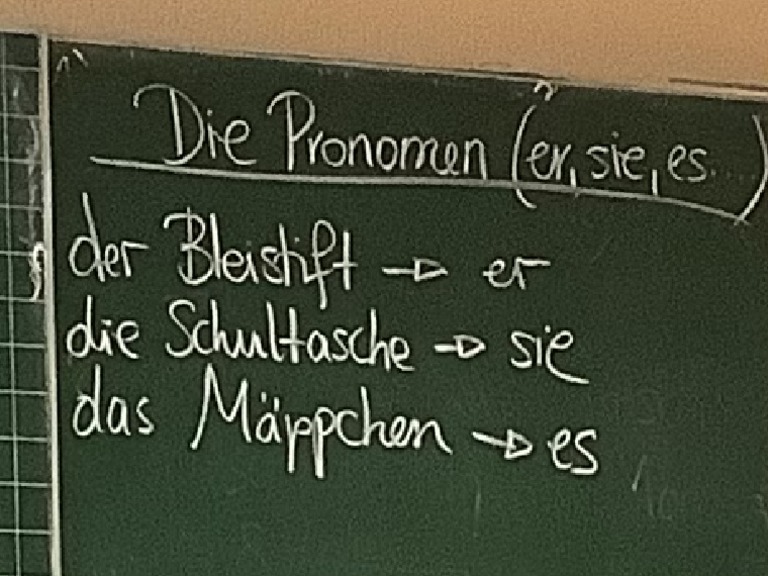 Die Pronomen (er, sie, es....)
der Bleistift → er
die Schultasche → sie
das Mäppchen → es